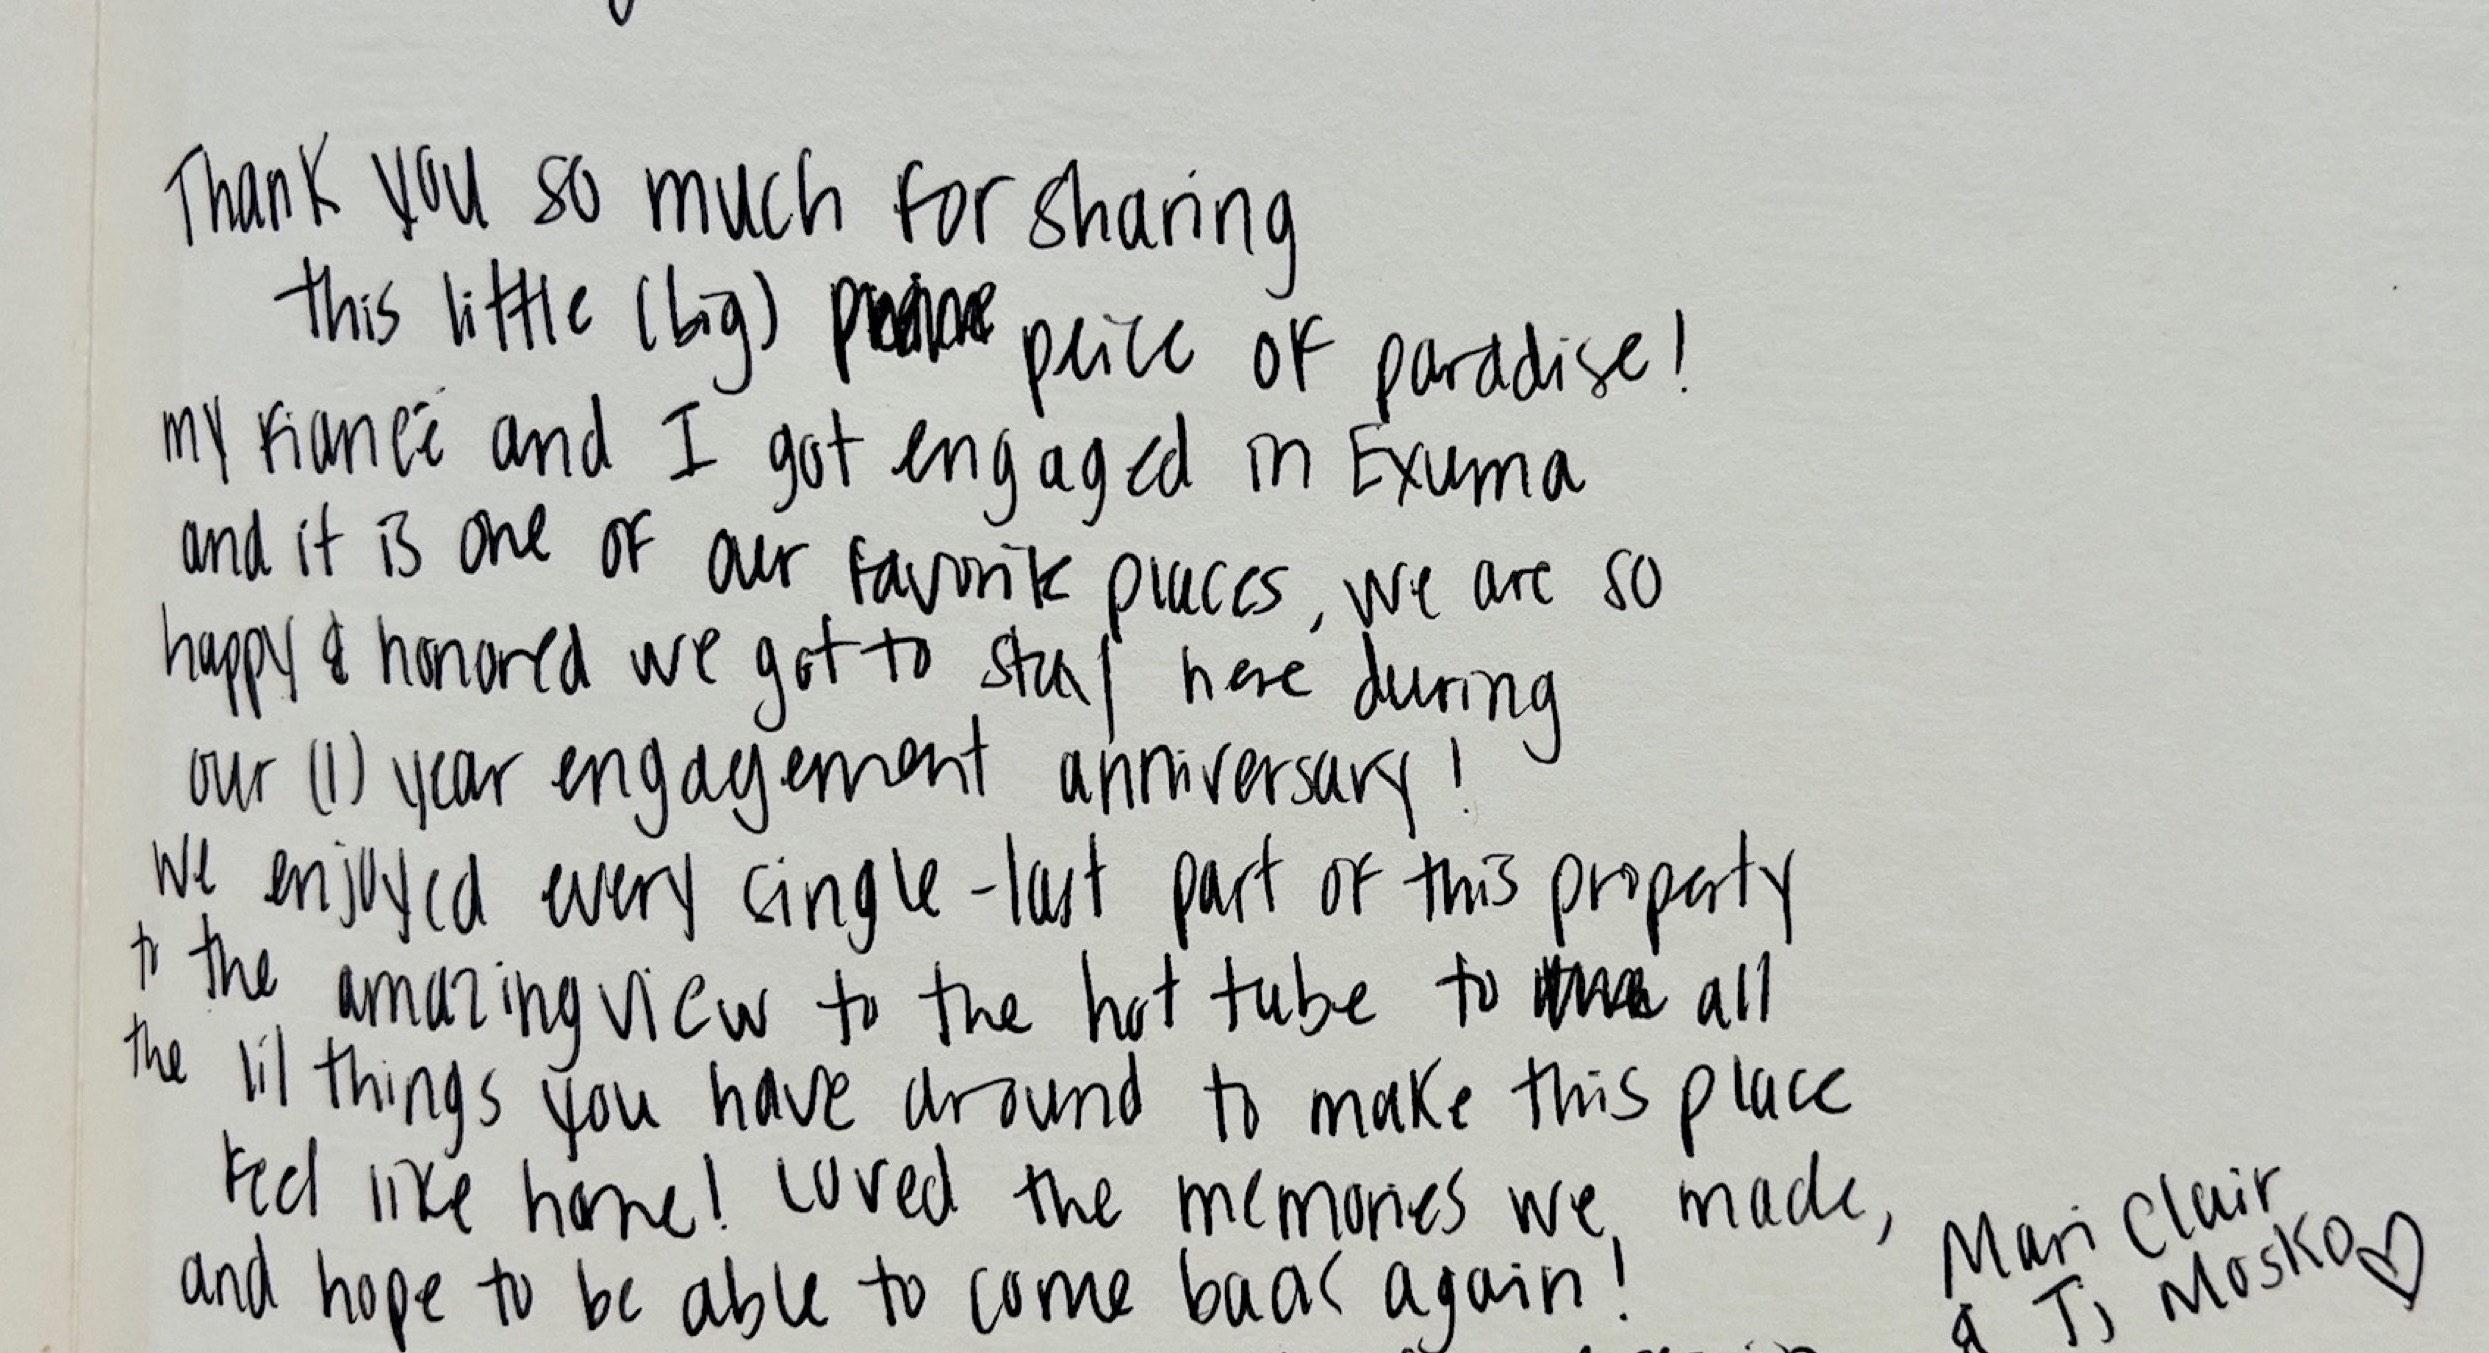 Thank you so much for sharing
this little (big) peice of paradise!
my fiancé and I got engaged in Exuma
and it is one of our favorite places, we are so
happy & honored we got to stay here during
our (1) year engagement anniversary!
We enjoyed every single-last part of this property
to the amazing view to the hot tube to all
the lil things you have around to make this place
feel like home! Loved the memories we made,
and hope to be able to come back again!
Mari Clair
& TJ Mosko